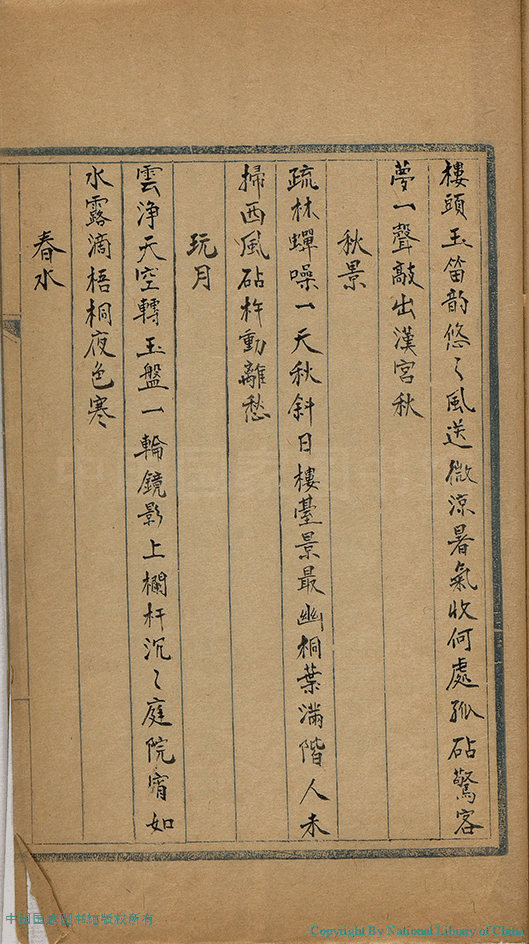 樓頭玉笛韵悠〻風送微涼暑氣收何處孤砧驚客
夢一聲敲出漢宮秋
秋景
疏林蟬噪一天秋斜日樓臺景最幽桐葉滿階人未
掃西風砧杵動離愁
玩月
雲净天空轉玉盤一輪鏡影上欄杆沉〻庭院宵如
水露滴梧桐夜色寒
春水
中国国家图书馆版权所有
Copyright By National Library of China